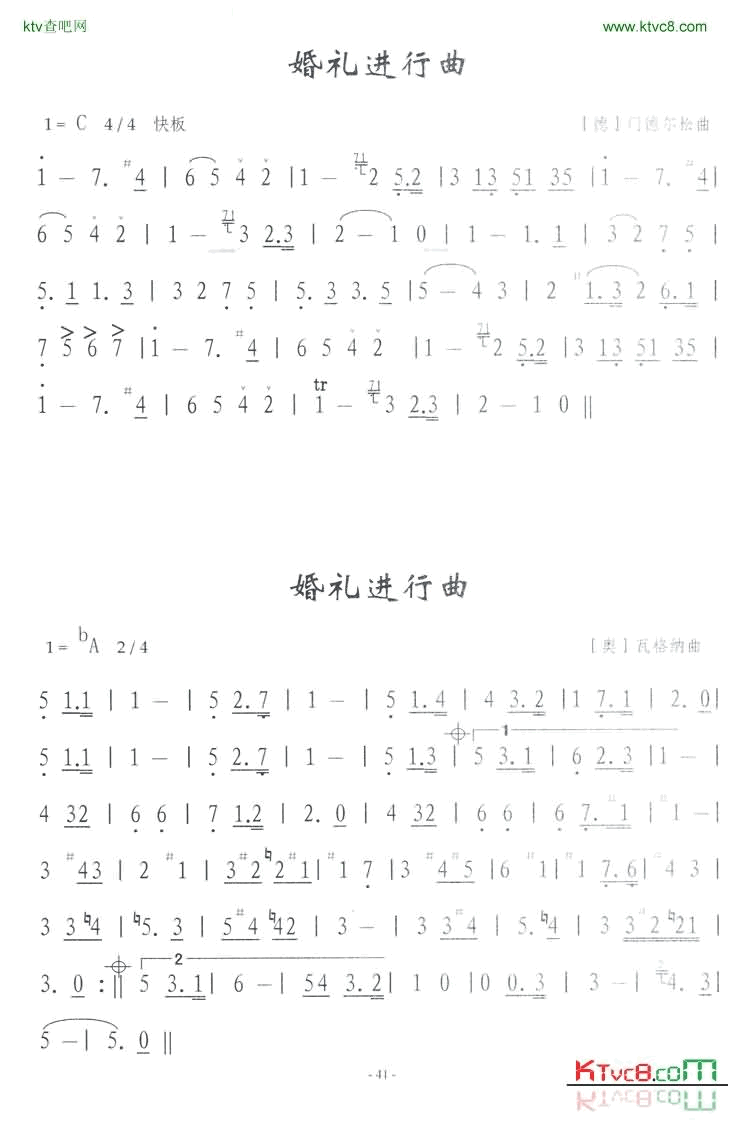 ktv查吧网 www.ktvc8.com
婚礼进行曲
1= C 4/4 快板 [德]门德尔松曲
1 — 7. #4 | 6 5 4 2 | 1 — 2 5.2 | 3 13 51 35 | 1 — 7. #4 |
6 5 4 2 | 1 — 3 2.3 | 2 — 1 0 | 1 — 1. 1 | 3 2 7 5 |
5. 1 1. 3 | 3 2 7 5 | 5. 3 3. 5 | 5 — 4 3 | 2 #1.3 2 6.1 |
7 5 6 7 | 1 — 7. #4 | 6 5 4 2 | 1 — 2 5.2 | 3 13 51 35 |
1 — 7. #4 | 6 5 4 2 | tr 1 — 3 2.3 | 2 — 1 0 ||
婚礼进行曲
1= bA 2/4 [奥]瓦格纳曲
5 1.1 | 1 — | 5 2.7 | 1 — | 5 1.4 | 4 3.2 | 1 7.1 | 2.0 |
5 1.1 | 1 — | 5 2.7 | 1 — | 5 1.3 | 1 5 3.1 | 6 2.3 | 1 — |
4 32 | 6 6 | 7 1.2 | 2. 0 | 4 32 | 6 6 | 6 7. #1 | #1 — |
3 #43 | 2 #1 | 3#2 ♮2#1 | #1 7 | 3 #4#5 | 6 #1 | #1 7.6 | #4 3 |
3 3♮4 | ♮5. 3 | 5#4 ♮42 | 3 — | 3 #4 | 5. ♮4 | 3 3#2 ♮21 |
3. 0 :|| 2 5 3.1 | 6 — | 54 3.2 | 1 0 | 0 0.3 | 3 — | 4. 3 |
5 — | 5. 0 ||
- 41 -
KTVC8.COM